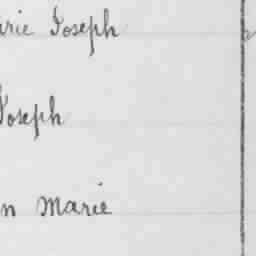 arie Joseph
Joseph
n Marie